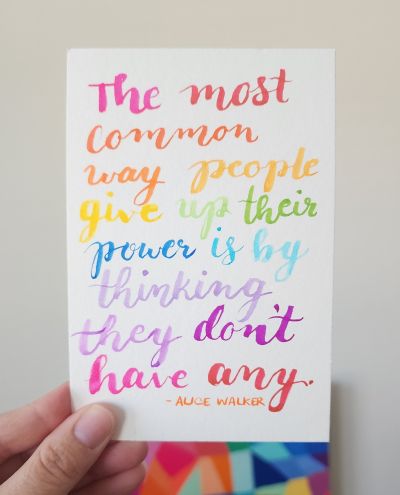 The most
common
way people
give up their
power is by
thinking
they don't
have any.
- ALICE WALKER